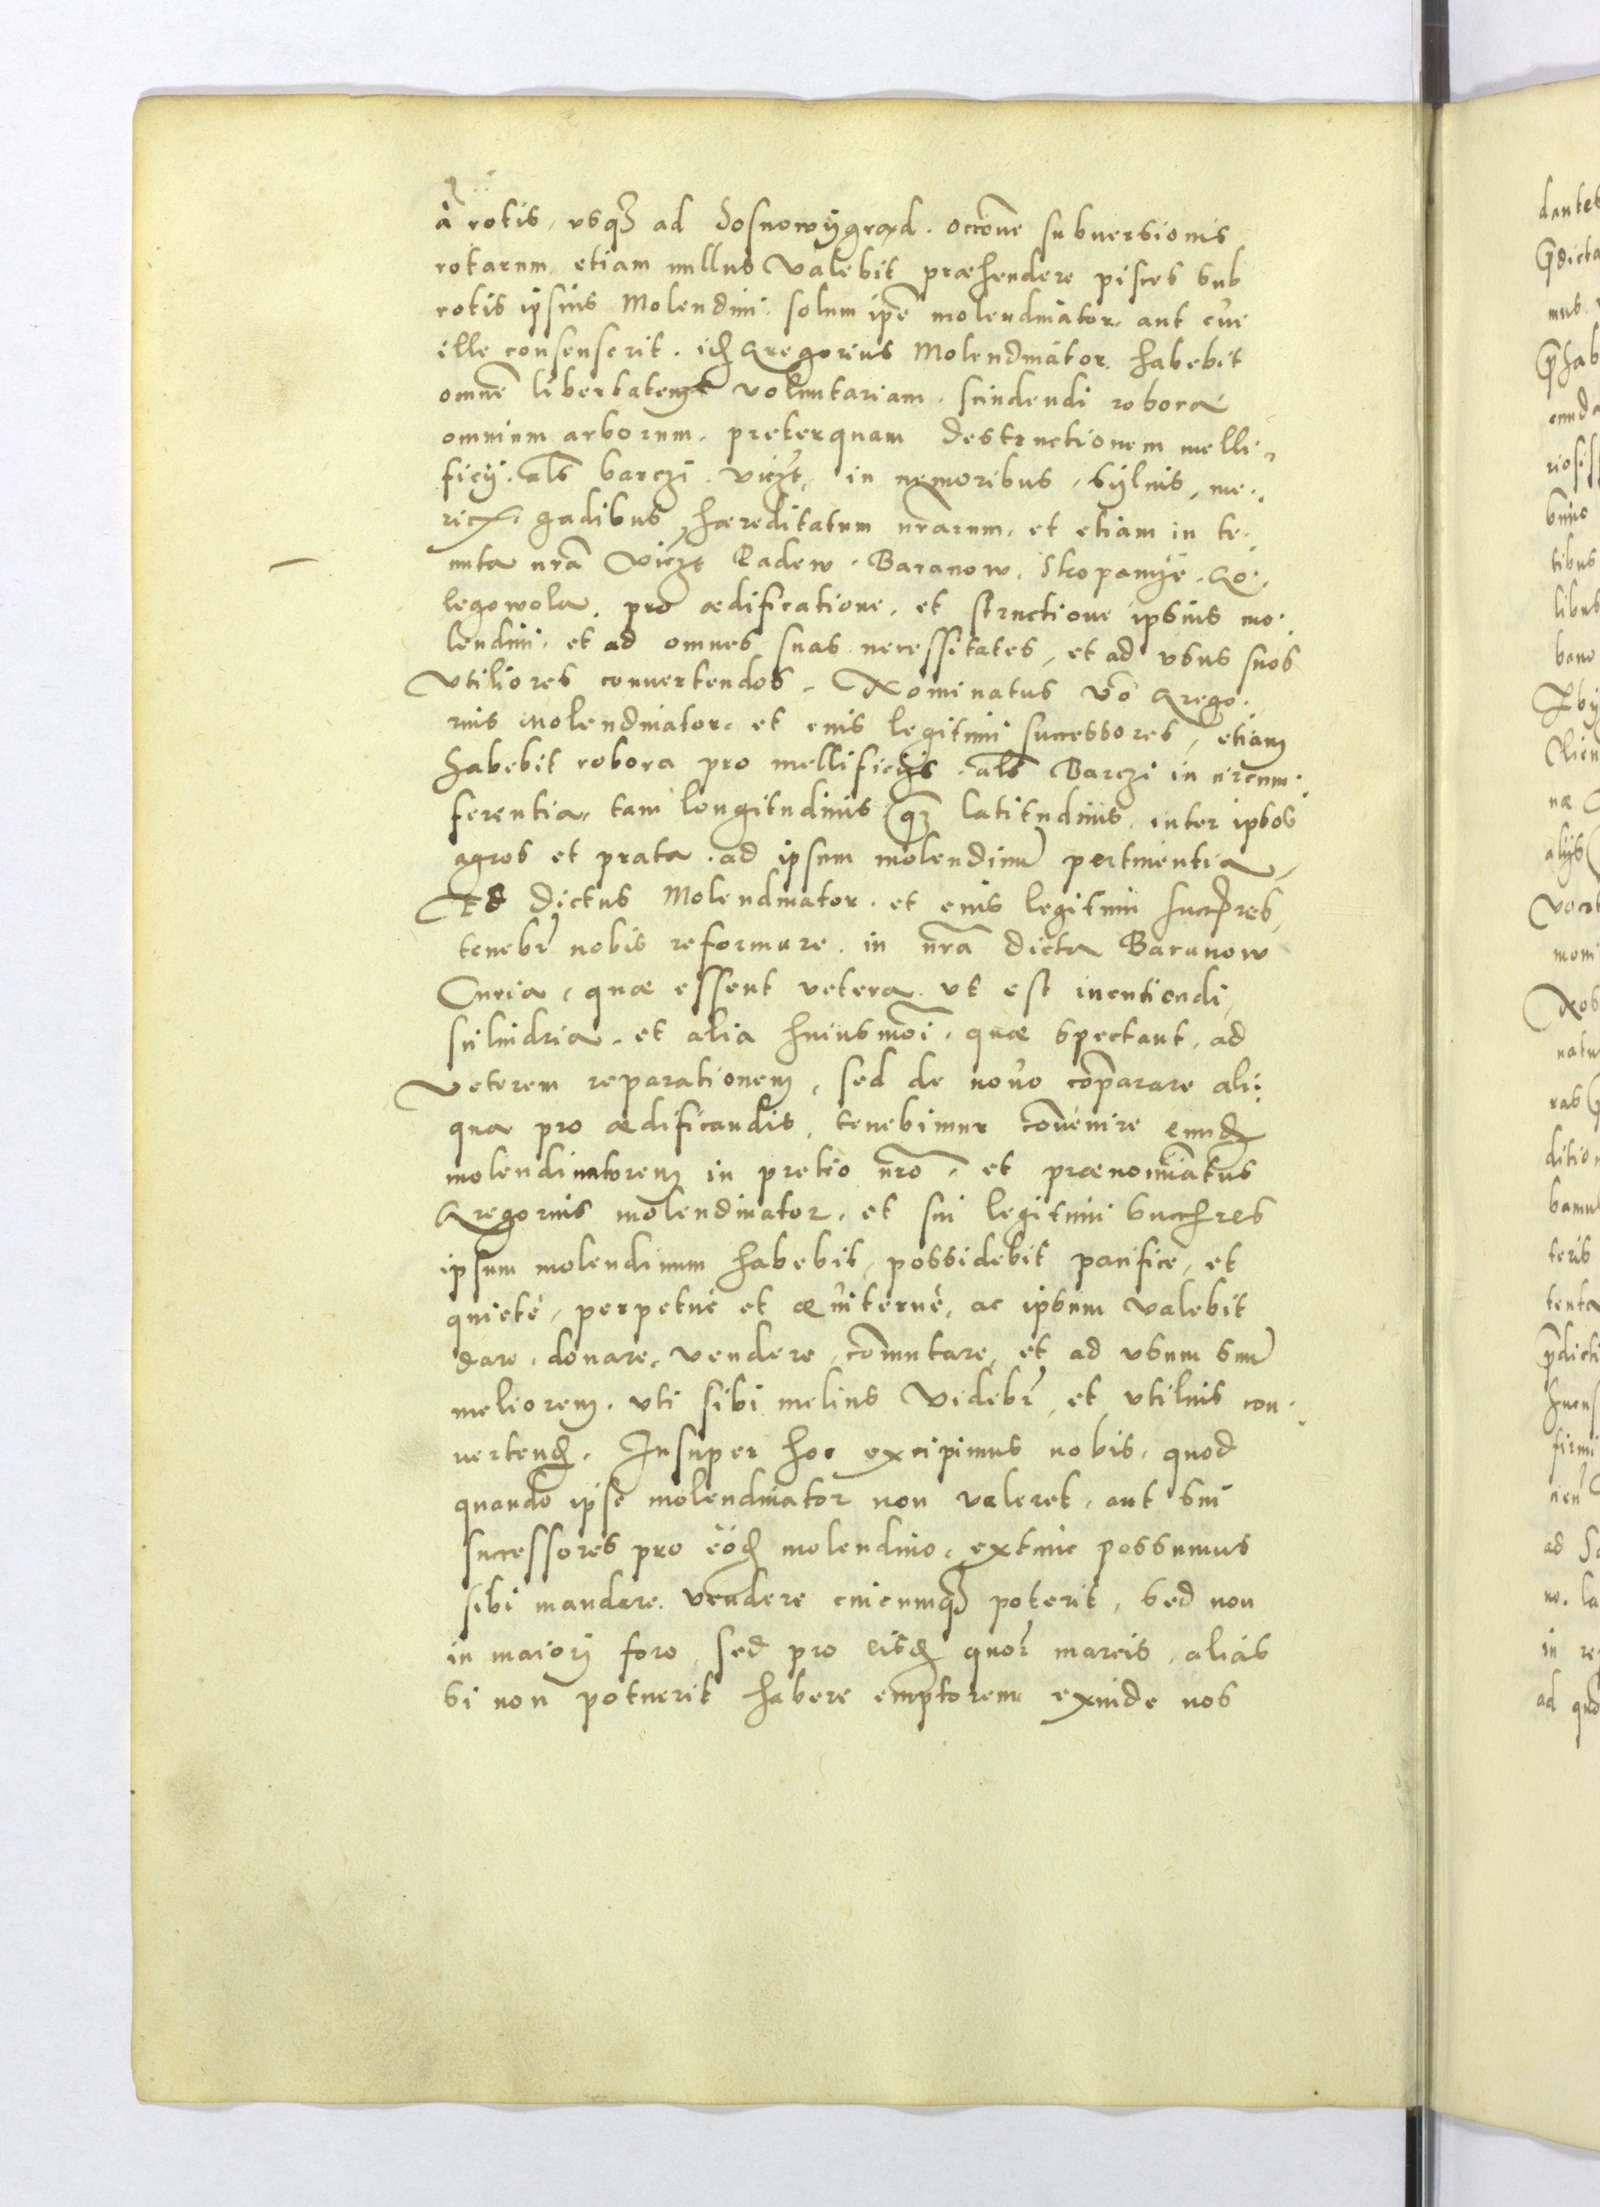 à rotis, usqȝ ad Sosnowÿgrąd. occōne subuersionis
rotarum etiam nullus valebit præhendere pisces sub
rotis ipsius Molendini. solum ip̄e molendinator. aut cūi
ille consenserit. idȝ Gregorius Molendinator. habebit
omnē libertatem voluntariam. scindendi robora
omnium arborum. preterquam destructionem melli-
ficij. als̄ barczi. viczt, in nemoribus, sÿluis, me-
ricȝ, gadibus, hæreditatum nr̄arum, et etiam in te-
nuta nr̄a viczt Padew. Baranow, Skopanÿe. Go-
legowola. pro ædificatione, et structione ipsius mo-
lendini. et ad omnes suas necessitates, et ad usus suos
Vtiliores conuertendos. Nominatus vō Grego-
rius Molendinator. et eius legitimi successores, etiam
habebit robora pro mellificijs. als̄ Barczi in circum-
ferentia, tam longitudinis qȝ latitudinis, inter ipsos
agros et prata. ad ipsum molendinū pertinentia,
Et dictus Molendinator. et eius legitimi succ̄res,
tenebr̄ nobis reformare. in nr̄a dicta Baranow
Curia, quæ essent vetera. ut est incutiendi,
silindria. et alia huiusmōi. quæ spectant, ad
Veterem reparationem, sed de nouo cōparare ali-
qua pro ædificandis, tenebimur cōuenire eundȝ
molendinatorem in pretio nr̄o. et prænomīatus
Gregorius molendinator. et sui legitimi succ̄res
ipsum molendinum habebit, possidebit pacifice, et
quietè, perpetuè et æuiternè, ac ipsum valebit
dare. donare, vendere, cōmutare, et ad usum suū
meliorem. uti sibi melius videbr̄, et utilius con-
uertendȝ. Insuper hoc excipimus nobis, quod
quando ipse molendinator non valeret, aut sui
successores pro eōdȝ molendino. extunc possumus
sibi mandare. vendere cuicumqȝ poterit, sed non
in maiori foro, sed pro eisdȝ quor̄ marcis, aliàs
si non potuerit habere emptorem exinde nos